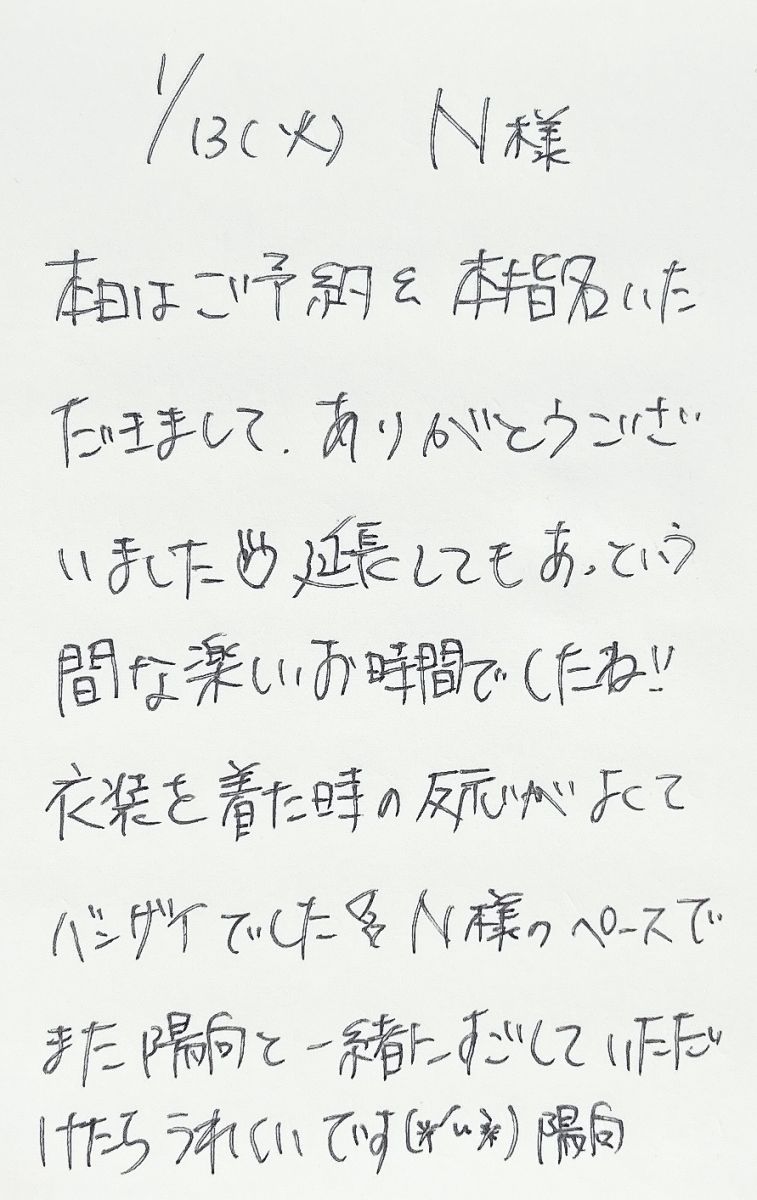 1/13(火) N様
本日はご予約を本指名いた
だきまして、ありがとうござい
いました 延長してもあっという
間な楽しいお時間でしたね!!
衣装を着た時の反応がよくて
バンザイでした N様のペースで
また陽向と一緒にすごしていただ
けたらうれしいです(*´ω`*) 陽向